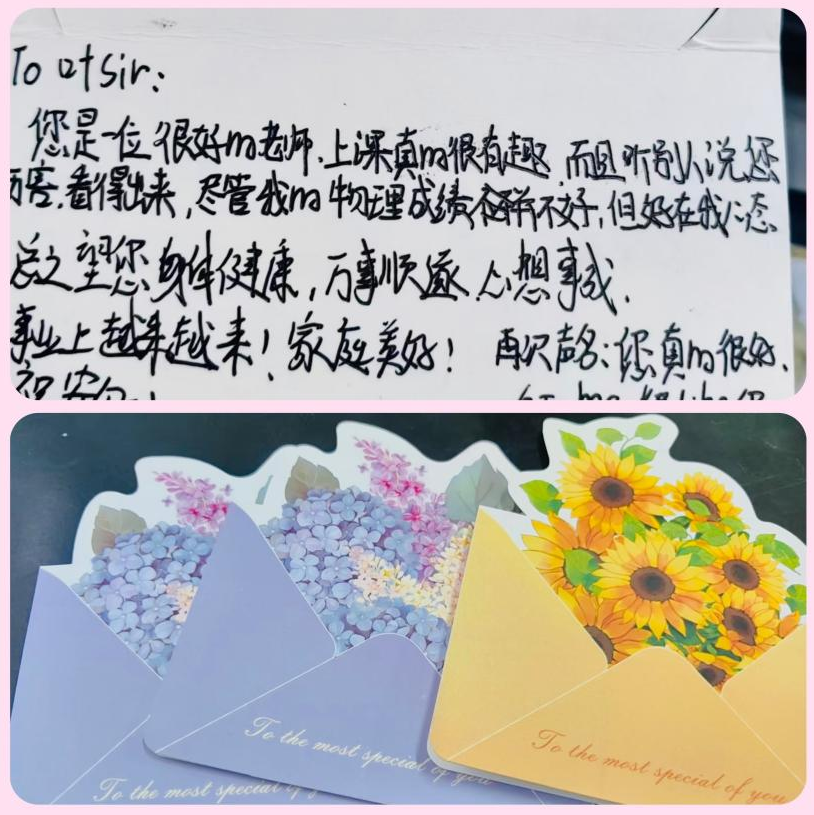 To 叶sir:
您是一位很好的老师.上课真的很有趣.而且听别人说您
厉害.看得出来,尽管我的物理成绩不好,但好在我心态
总之望您身体健康,万事顺遂.心想事成.
事业上越来越来!家庭美好! 再次声名:您真的很好.
祝
To the most special of you
To the most special of you
To the most special of